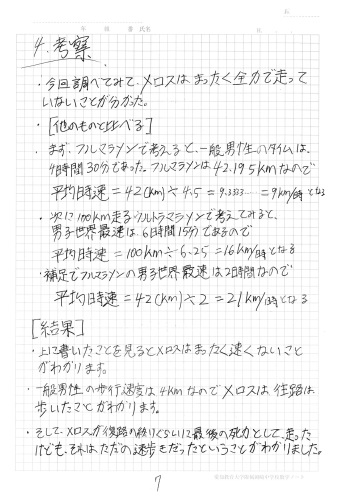 4. 考察
・今回調べてみて、メロスはまったく全力で走って
いないことが分かった。
・[他のものと比べる]
・まず、フルマラソンで考えると、一般男性のタイムは、
4時間30分であった。フルマラソンは42.195kmなので
平均時速=42(km)÷4.5=9.3333……=9km/時となる
・次に100km走るウルトラマラソンで考えてみると、
男子世界最速は、6時間15分であるので
平均時速=100km÷6.25=16km/時となる
・補足でフルマラソンの男子世界最速は2時間なので
平均時速=42(km)÷2=21km/時となる
[結果]
・上に書いたことを見るとメロスはまったく速くないこと
がわかります。
・一般男性の歩行速度は4kmなのでメロスは往路は
歩いたことがわかります。
・そして、メロスが復路の終りぐらいに最後の死力として、走った
けども、それはただの速歩きだったということがわかりました。
7